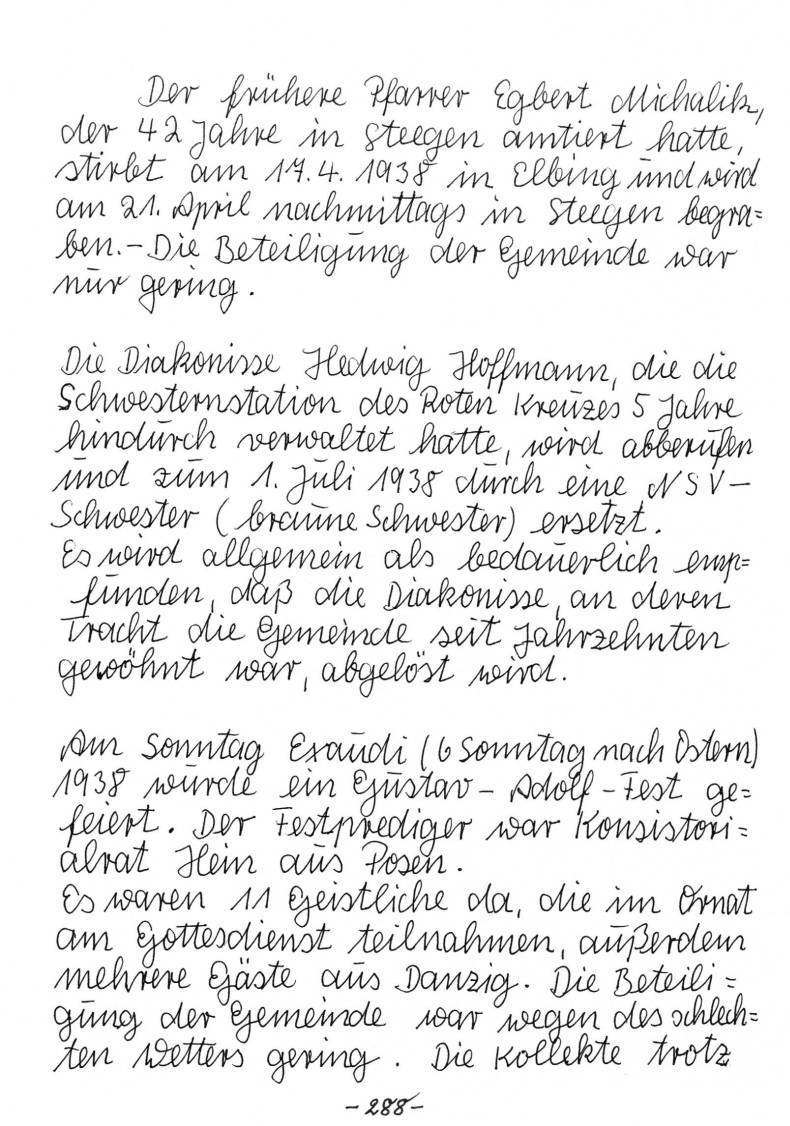 Der frühere Pfarrer Egbert Michalik,
der 42 Jahre in Steegen amtiert hatte,
stirbt am 17.4. 1938 in Elbing und wird
am 21. April nachmittags in Steegen begra=
ben.- Die Beteiligung der Gemeinde war
nur gering.
Die Diakonisse Hedwig Hoffmann, die die
Schwesternstation des Roten Kreuzes 5 Jahre
hindurch verwaltet hatte, wird abberufen
und zum 1. Juli 1938 durch eine NSV-
Schwester (braune Schwester) ersetzt.
Es wird allgemein als bedauerlich emp=
funden, daß die Diakonisse, an deren
Tracht die Gemeinde seit Jahrzehnten
gewöhnt war, abgelöst wird.
Am Sonntag Exaudi (6 Sonntag nach Ostern)
1938 wurde ein Gustav-Adolf-Fest ge=
feiert. Der Festprediger war Konsistori=
alrat Hein aus Posen.
Es waren 11 Geistliche da, die im Ornat
am Gottesdienst teilnahmen, außerdem
mehrere Gäste aus Danzig. Die Beteili=
gung der Gemeinde war wegen des schlech=
ten Wetters gering. Die Kollekte trotz
-288-